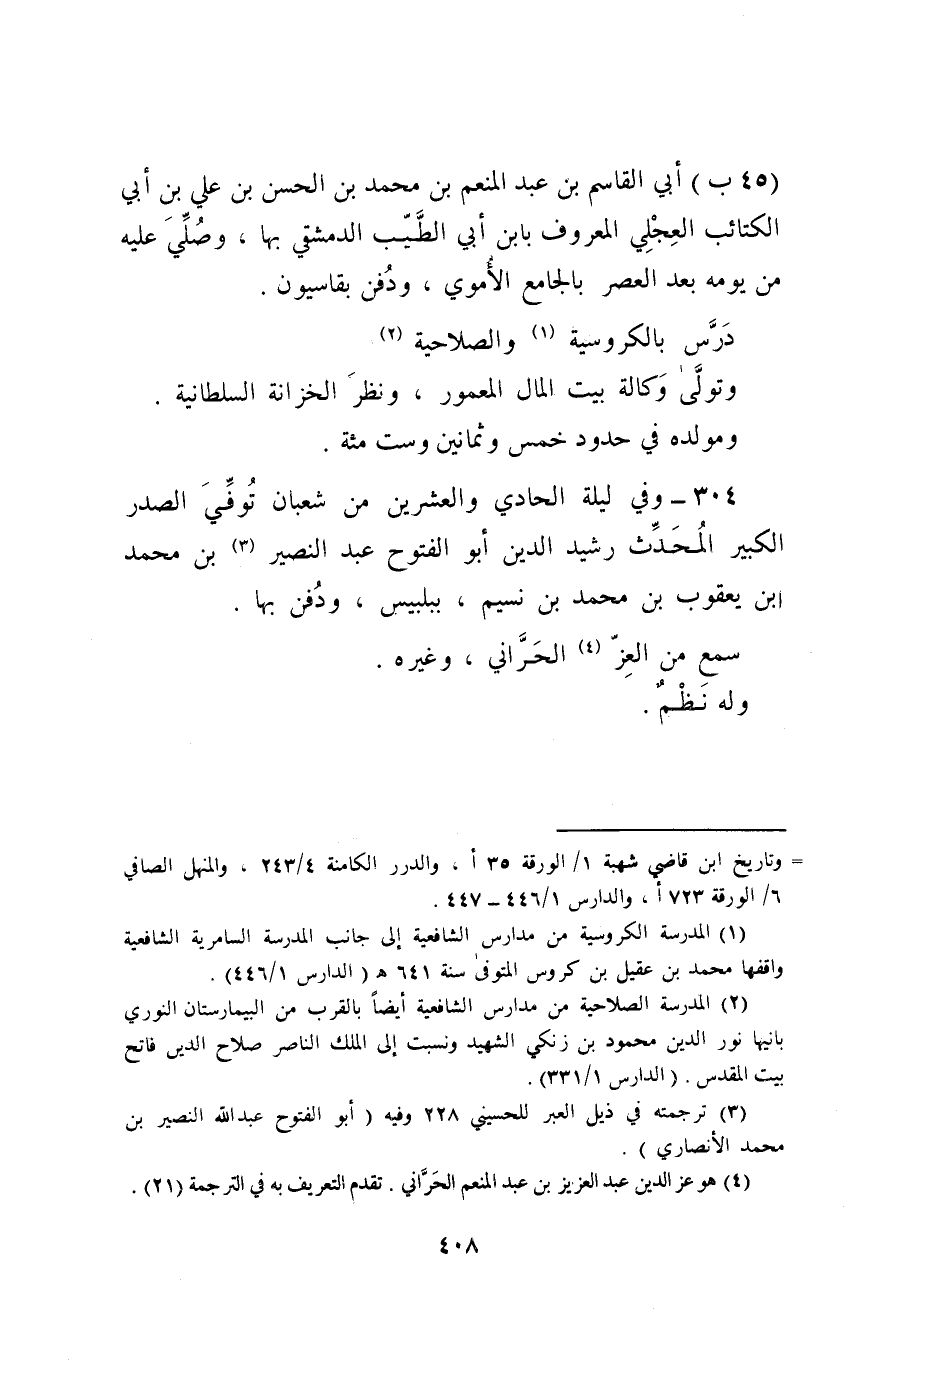 (٤٥ ب) أبي القاسم بن عبد المنعم بن محمد بن الحسن بن علي بن أبي
الكتائب العِجْلِي المعروف بابن أبي الطَّيّب الدمشقي بها ، وصُلِّيَ عليه
من يومه بعد العصر بالجامع الأُموي ، ودُفن بقاسيون .
دَرَّس بالكروسية (١) والصلاحية (٢)
وتولَّىٰ وَكالة بيت المال المعمور ، ونظرَ الخزانة السلطانية .
ومولده في حدود خمس وثمانين وست مئة .
٣٠٤ ـ وفي ليلة الحادي والعشرين من شعبان تُوفِّيَ الصدر
الكبير المُحَدِّث رشيد الدين أبو الفتوح عبد النصير (٣) بن محمد
ابن يعقوب بن محمد بن نسيم ، ببلبيس ، ودُفن بها .
سمع من العِزّ (٤) الحَرَّاني ، وغيره .
وله نَظْمٌ .
= وتاريخ ابن قاضي شهبة ١/ الورقة ٣٥ أ ، والدرر الكامنة ٢٤٣/٤ ، والمنهل الصافي
٦/ الورقة ٧٢٣ أ ، والدارس ٤٤٦/١ ـ ٤٤٧ .
(١) المدرسة الكروسية من مدارس الشافعية إلى جانب المدرسة السامرية الشافعية
واقفها محمد بن عقيل بن كروس المتوفىٰ سنة ٦٤١ ه ( الدارس ٤٤٦/١) .
(٢) المدرسة الصلاحية من مدارس الشافعية أيضاً بالقرب من البيمارستان النوري
بانيها نور الدين محمود بن زنكي الشهيد ونسبت إلى الملك الناصر صلاح الدين فاتح
بيت المقدس . ( الدارس ٣٣١/١) .
(٣) ترجمته في ذيل العبر للحسيني ٢٢٨ وفيه ( أبو الفتوح عبدالله النصير بن
محمد الأنصاري ) .
(٤) هو عز الدين عبد العزيز بن عبد المنعم الحَرَّاني . تقدم التعريف به في الترجمة (٢١) .
٤٠٨